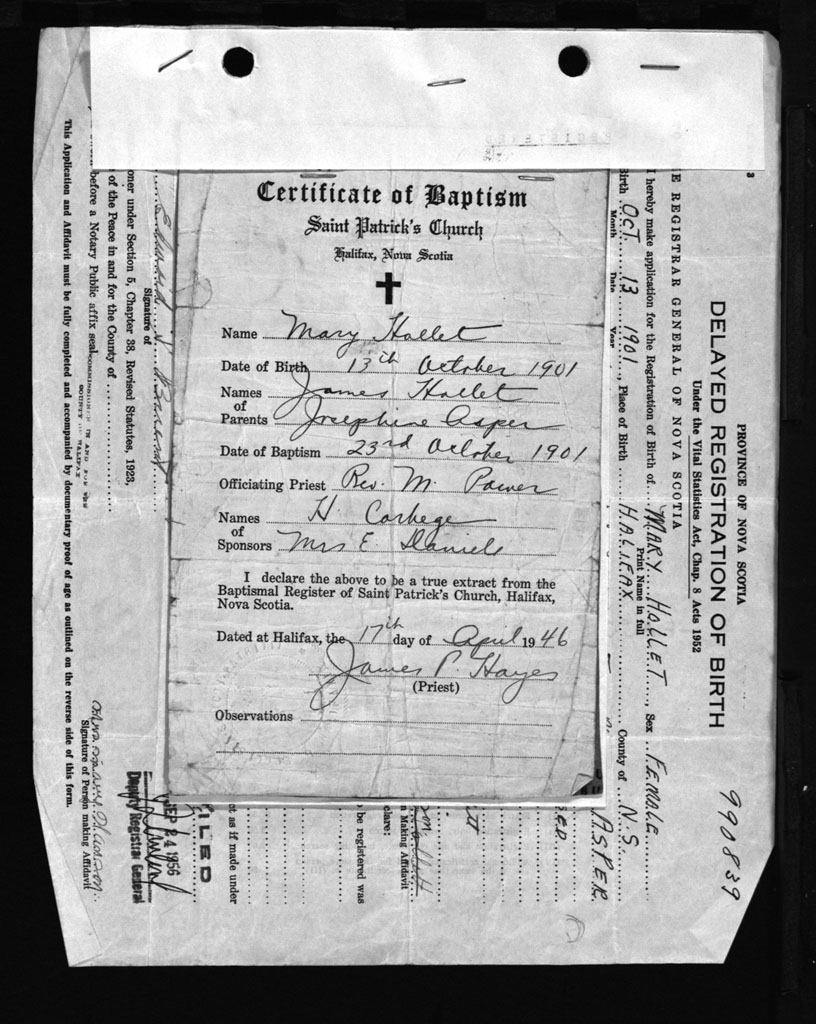 Certificate of Baptism
Saint Patrick's Church
Halifax, Nova Scotia
Name Mary Hallet
Date of Birth 13th October 1901
Names of Parents James Hallet
Josephine Asper
Date of Baptism 23rd October 1901
Officiating Priest Rev. M. Power
Names of Sponsors H. Corhege
Mrs E Daniels
I declare the above to be a true extract from the
Baptismal Register of Saint Patrick's Church, Halifax,
Nova Scotia.
Dated at Halifax, the 17th day of April 1946
James P. Hayes
(Priest)
Observations
PROVINCE OF NOVA SCOTIA
DELAYED REGISTRATION OF BIRTH
Under the Vital Statistics Act, Chap. 8 Acts 1952
990839
E REGISTRAR GENERAL OF NOVA SCOTIA
I hereby make application for the Registration of Birth of MARY HALLET, Sex FEMALE
Print Name in full
Birth OCT. 13 1901, Place of Birth HALIFAX County of N.S.
Month Date Year
ASPER
be registered was
clare:
n Making Affidavit
ct as if made under
FILED
SEP 24 1956
Deputy Registrar General
Signature of
oner under Section 5, Chapter 38, Revised Statutes, 1923,
of the Peace in and for the County of
before a Notary Public affix seal.
COMMISSIONER IN AND FOR THE
COUNTY OF HALIFAX
Signature of Person making Affidavit
This Application and Affidavit must be fully completed and accompanied by documentary proof of age as outlined on the reverse side of this form.